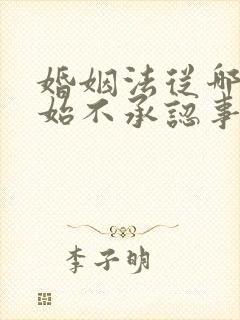 婚姻法從哪
始不承認事
李子明